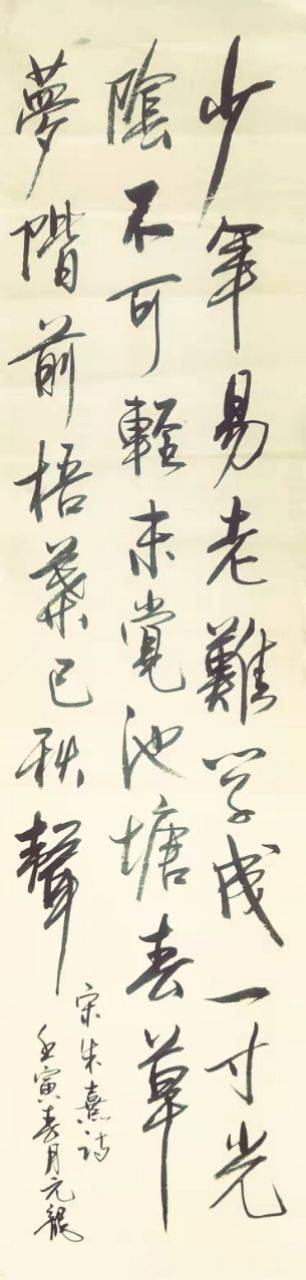 少年易老難学成一寸光
陰不可輕未覚池塘春草
夢階前梧葉已秋聲
宋朱熹詩
壬寅春月元龍